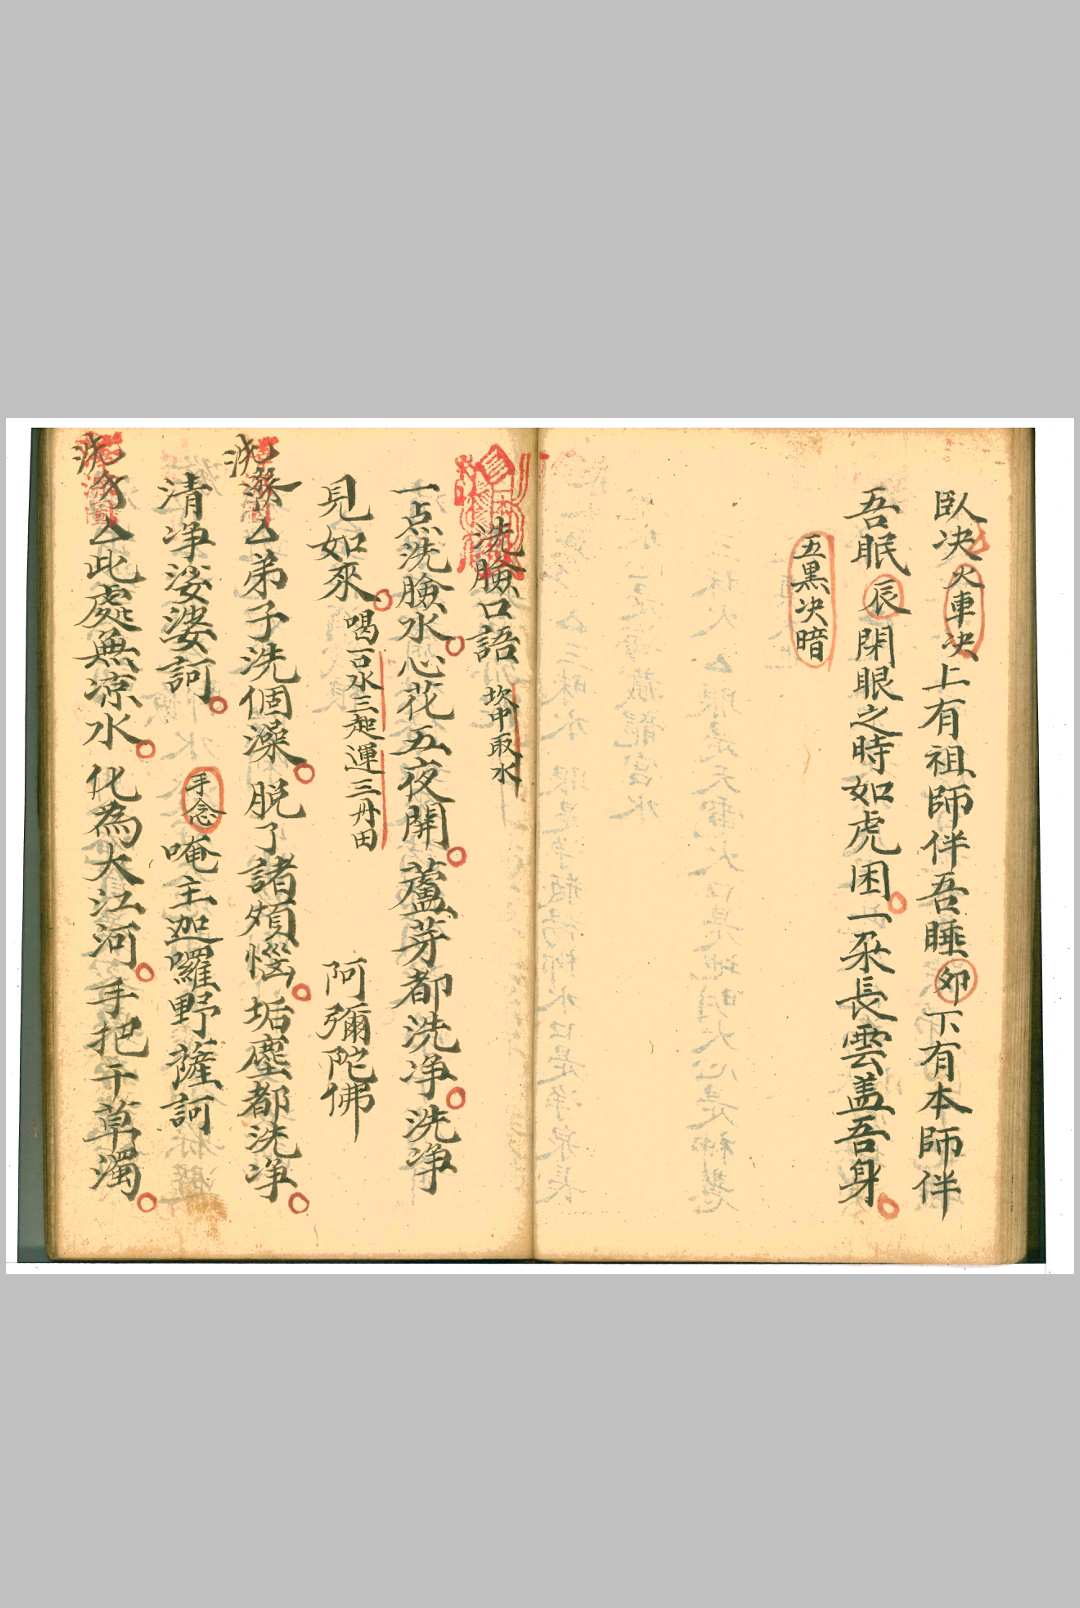 臥决火車决上有祖師伴吾睡卯下有本師伴
吾眠辰閉眼之時如虎困一朵長雲盖吾身
五黑决暗
洗臉口語 坎中取水
一点洗臉水心花五夜開蘆芽都洗净洗净
見如來 喝一口水三起運三丹田 阿彌陀佛
洗澡 厶弟子洗個澡脱了諸煩惱垢塵都洗净
清净娑婆訶 手念 唵主迦囉野薩訶
洗 厶此處無凉水化為大江河手把干草濁